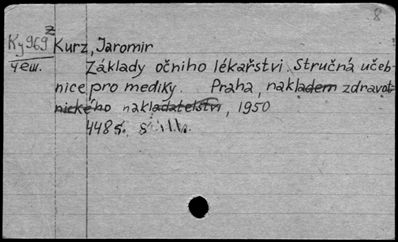 8
Ky969 z Kurz, Jaromir
чеш. Základy očního lékařství. Stručná učeb-
nice pro mediky. Praha, nakladem zdravot-
nického nakladatelství, 1950
448 s.